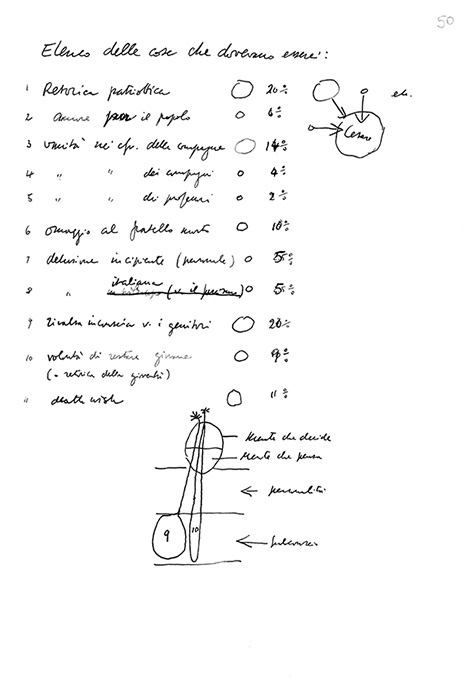 50
Elenco delle cose che dovevano esserci:
1 Retorica patriottica 20%
etc.
2 amore per il popolo 6%
Cesare
3 vanità nei cfr. delle compagne 14%
4 " " dei compagni 4%
5 " " di 2%
6 omaggio al fratello morto 10%
7 delusione incipiente (personale) 5%
8 " italiana 5%
9 rivalsa inconscia v. i genitori 20%
10 volontà di restare giovane 9%
(= retorica della gioventù)
11 death wish 11%
Mente che decide
Mente che pensa
personalità
9 10